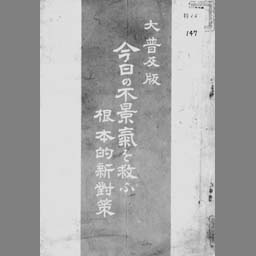 大普及版
今日の不景氣を救ふ
根本的新對策
147